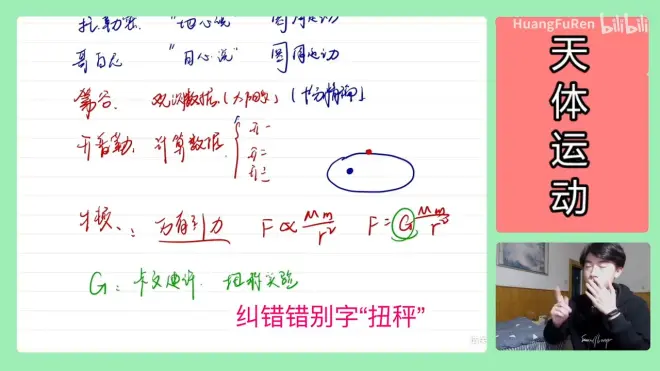 HuangFuRen bilibili
托勒密 "地心说" 匀周运动
哥白尼 "日心说" 匀周运动
第谷: 观测数据(大师兄)
开普勒: 计算数据 { 开一
开二
开三
牛顿: 万有引力 F∝Mm/r² F=G Mm/r²
G: 卡文迪许 扭称实验
纠错错别字“扭秤”
天体运动